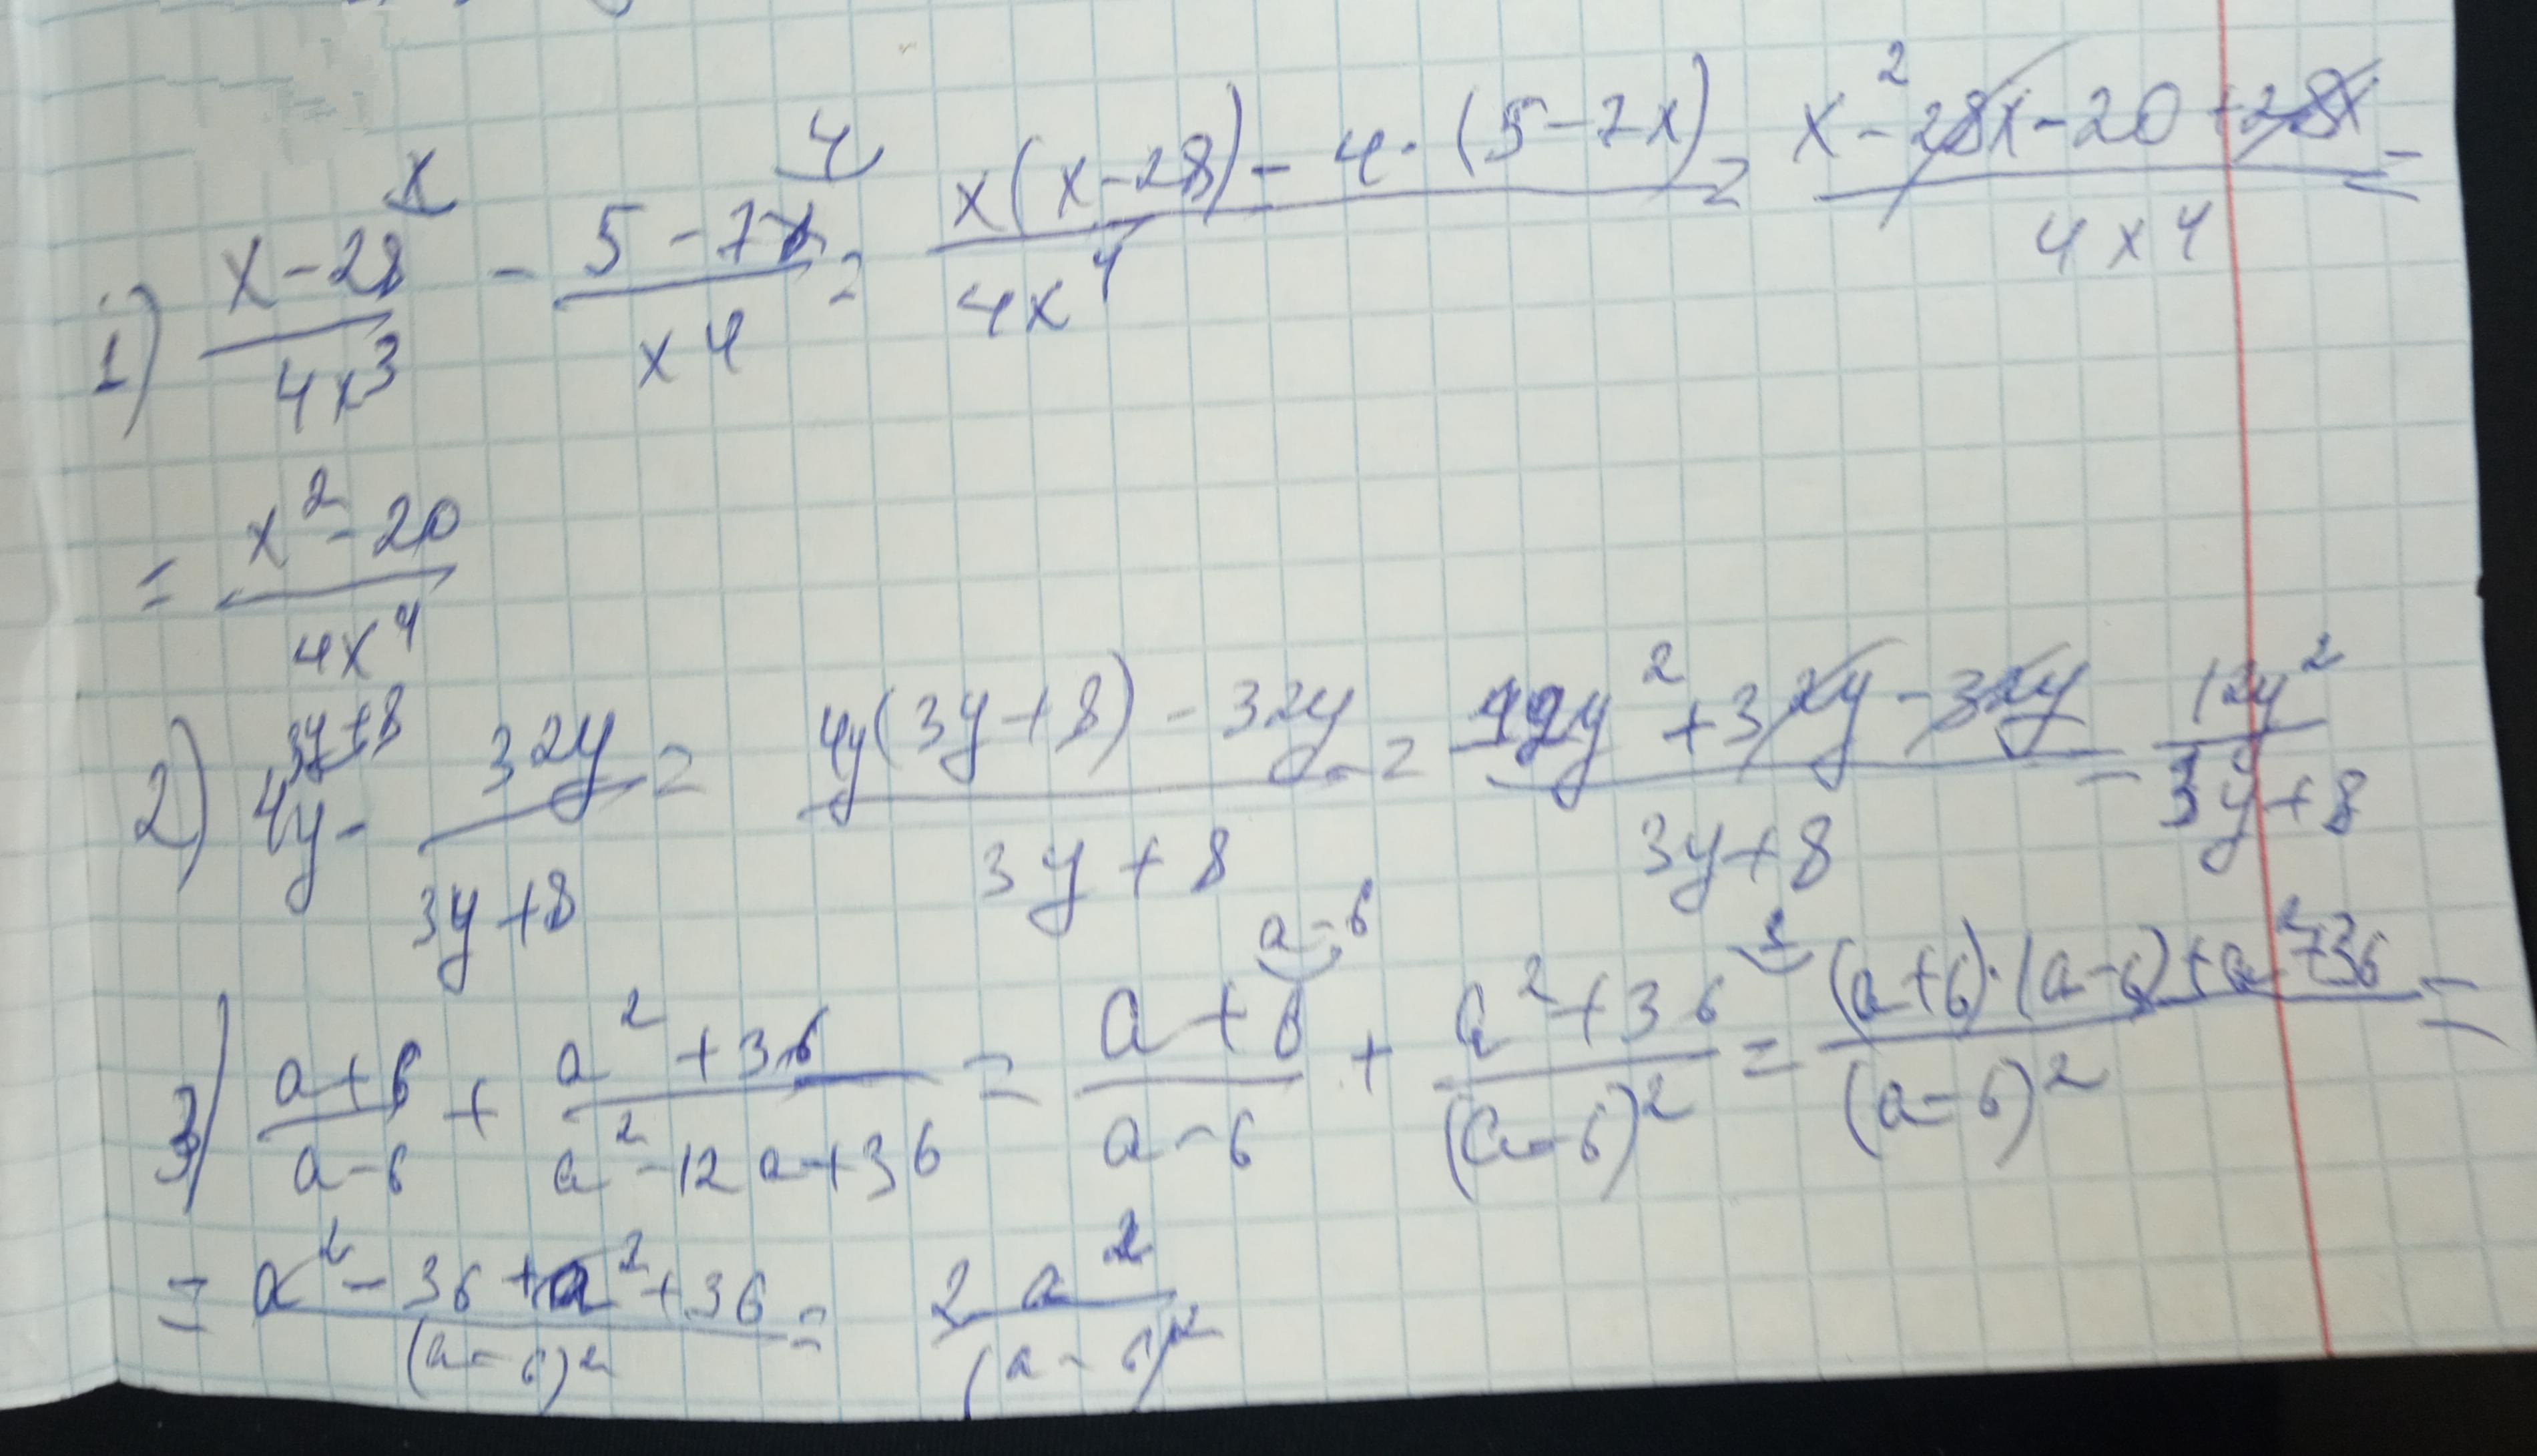 1) (x-28)/(4x³) ^x - (5-7x)/(x⁴) ^4 = (x(x-28) - 4·(5-7x))/(4x⁴) = (x²-28x-20+28x)/(4x⁴) =
= (x²-20)/(4x⁴)
2) 4y ^3y+8 - (32y)/(3y+8) = (4y(3y+8) - 32y)/(3y+8) = (12y²+32y-32y)/(3y+8) = (12y²)/(3y+8)
3) (a+6)/(a-6) + (a²+36)/(a²-12a+36) = (a+6)/(a-6) ^a-6 + (a²+36)/((a-6)²) ^1 = ((a+6)·(a-6)+a²+36)/((a-6)²) =
= (a²-36+a²+36)/((a-6)²) = (2a²)/((a-6)²)